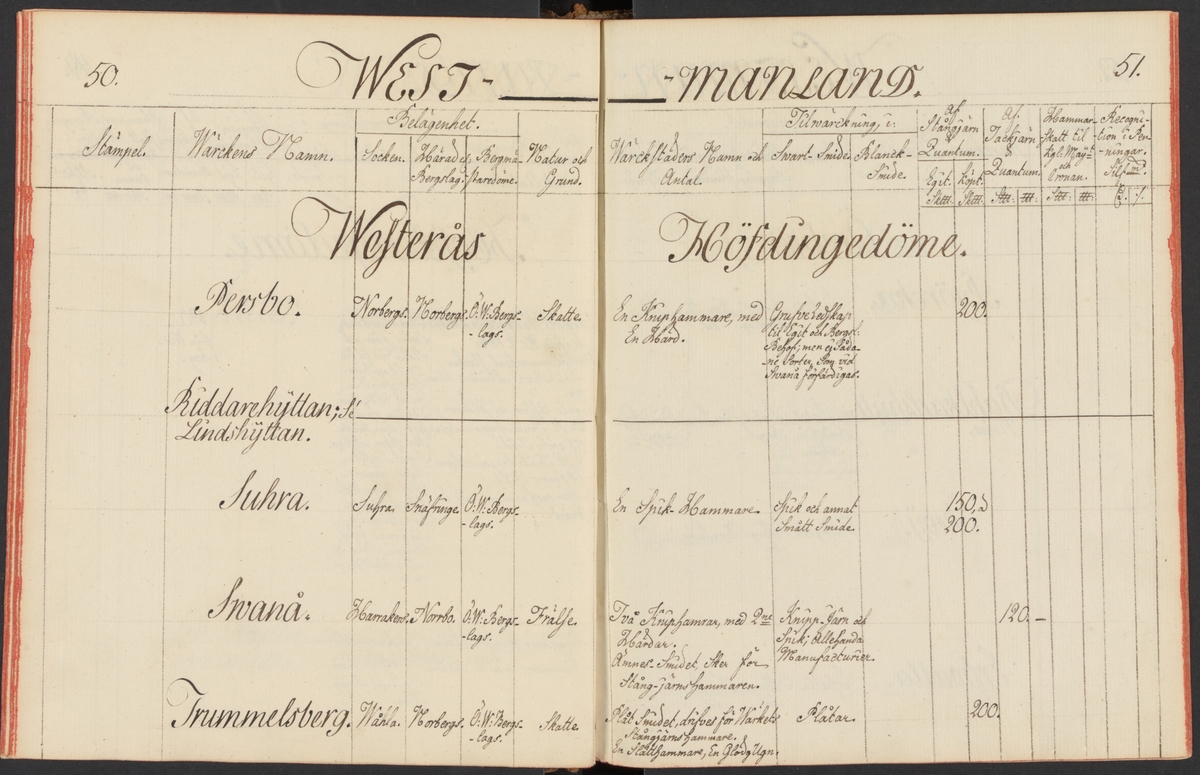 50.
WEST-
-MANLAND.
51.
Stämpel.
Wärckens Namn.
Belägenhet.
Socken.
Härad el.
Bergslag.
Bergmä-
stare döme.
Natur och
Grund.
Wärckstäders Namn och
Antal.
Tilwärckning, i:
Swart-Smide.
Blanck-
Smide.
af
Stångjärn
Quantum.
Egit. Köpt.
Sktt: Sktt:
af
Tackjärn
Quantum.
Stt: tt:
Hammar-
skatt til
Kgl: Maÿ:t
och
Cronan.
Stt: tt:
Recogni-
tion i Pen
-ningar.
Silf:mt
Westerås
Höfdingedöme.
Persbo.
Norbergs.
Norbergs.
Ö:W:Bergs-
-lags.
Skatte.
En Kniphammare, med
En Härd.
Grufveredskap
til Egit och Bergsl:
Behof; men ej Såda-
ne Sorter, Som vid
Swanå förfärdigas.
200.
Riddarehyttan; Se
Lindshyttan.
Suhra.
Suhra.
Snäfringe.
Ö:W:Bergs-
-lags.
En Spik-Hammare.
Spik och annat
Smått Smide.
150.
200.
Swanå.
Harrakers.
Norrbo.
Ö:W:Bergs-
-lags.
Frälse.
Två Kniphamrar, med 2ne
Härdar.
Ämnes-Smidet, Sker för
Stång-järnshammaren.
Knipp-Järn och
Spik; Allehanda
Manufacturier.
120. -
Trummelsberg.
Wåhla.
Norbergs.
Ö:W:Bergs-
-lags.
Skatte.
Plåt Smidet, drifves för Warkets
Stångjärnshammare.
En Slätthammare, En Glödg Ugn.
Plåtar.
200.